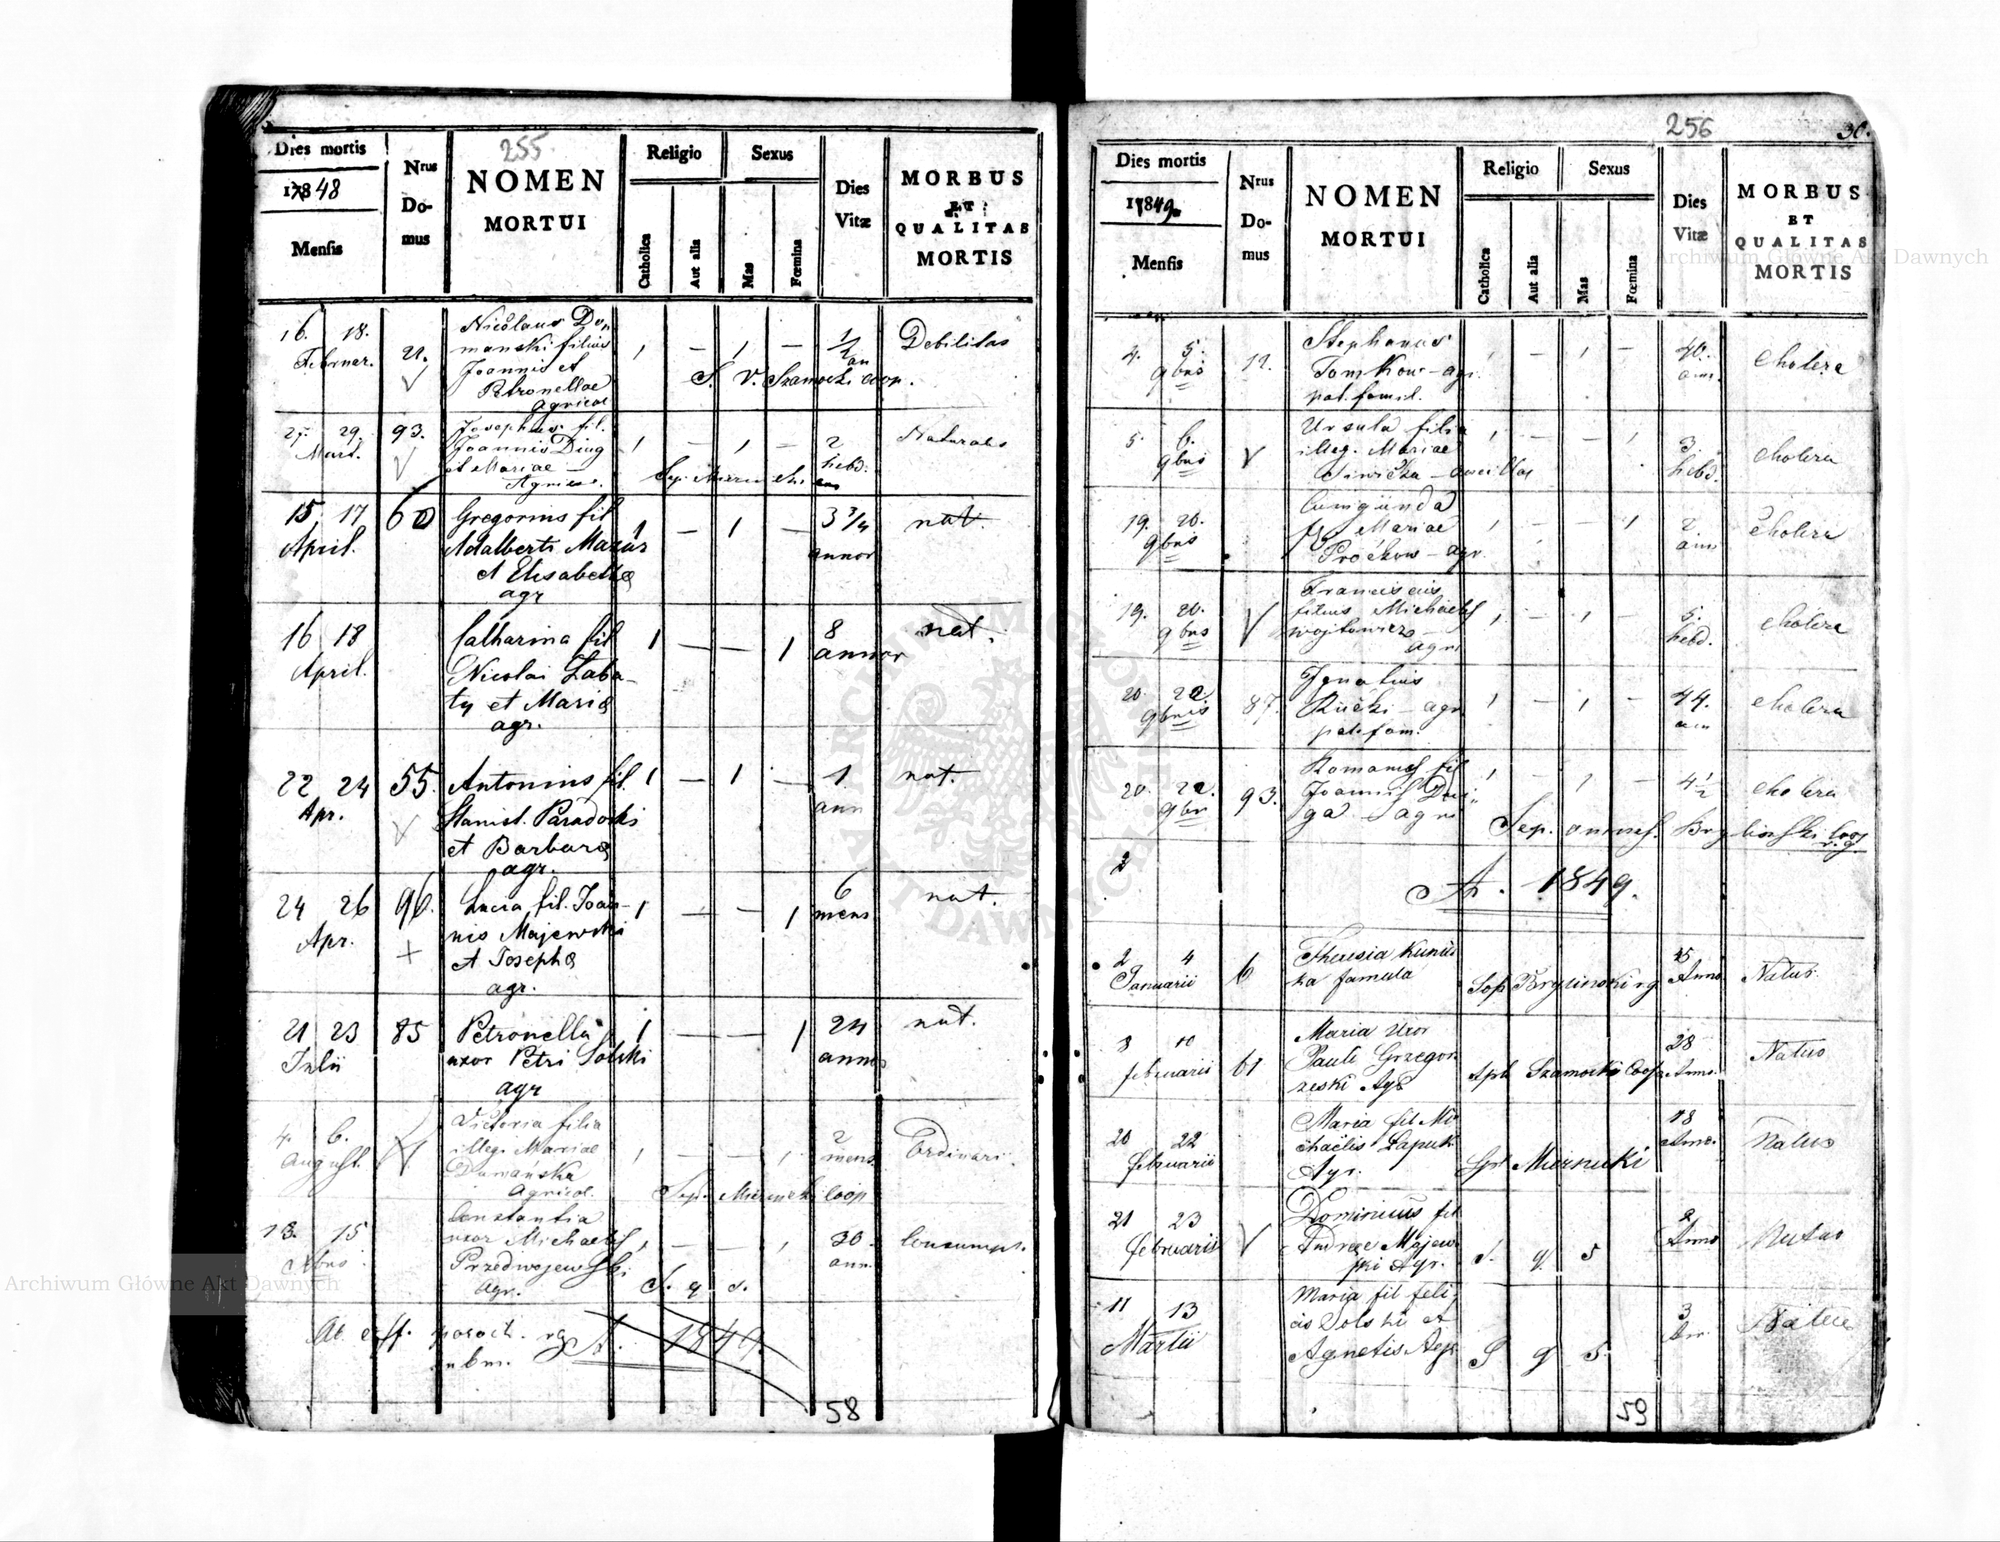 255
Dies mortis
1848
Mensis
Nrus
Do-
mus
NOMEN
MORTUI
Religio
Catholica
Aut alia
Sexus
Mas
Fœmina
Dies
Vitæ
MORBUS
ET
QUALITAS
MORTIS
16. 18.
Februar.
21.
Nicolaus Do-
manski filius
Joannis et
Petronellae
Agricol
1 — 1 —
1/2
an
Debilitas
S. V. Szamocki coop.
29.
Mart.
93.
Josephus fil.
Joannis
et Mariae —
1 — 1 —
2
hebd.
Naturales
15 17
April.
60
Gregorius fil
Adalberti Mazur
et Elisabethæ
agr
1 — 1 —
3 3/4
annor
nat.
16 18
April.
Catharina fil
Nicolai Laba-
ty et Mariæ
agr.
1 — — 1
8
annor
nat.
22 24
Apr.
55.
Antonius fil.
Stanisl. Paradoski
et Barbaræ
agr.
1 — 1 —
1
ann
nat.
24 26
Apr.
96.
Lucia fil. Joan-
nis Majewski
et Josephæ
agr.
1 — — 1
6
mens
nat.
21 23
Julii
85
Petronella
uxor Petri Solski
agr
1 — — 1
24
annor
nat.
4. 6.
August.
Victoria filia
illeg. Mariae
Dumańska
Agricol.
1 — — 1
2
mens
Ordinari.
Sep. coop
13. 15
Constantia
uxor Michaelis
Przedwojewski
Agr.
1 — — 1
30
ann.
Consumpt.
S. q. s.
A. 1849.
58
256
Dies mortis
1849
Mensis
Nrus
Do-
mus
NOMEN
MORTUI
Religio
Catholica
Aut alia
Sexus
Mas
Fœmina
Dies
Vitæ
MORBUS
ET
QUALITAS
MORTIS
4. 5.
9bris
12.
Stephanus
Tomkow — agr.
pat. famil.
1 — 1 —
40.
ann.
cholera
5. 6.
9bris
Ursula filia
illeg. Mariae
1 — — 1
3.
hebd.
cholera
19. 20.
9bris
Cunigunda
Mariae
Prockow — agr.
1 — — 1
2
ann
cholera
19. 20.
9bris
Franciscus
filius Michaelis
Wojtowicz —
agri
1 — 1 —
5.
hebd.
cholera
20 22
9bris
87.
Ignatius
Rucki — agr
pat. fam.
1 — 1 —
44.
ann
cholera
20. 22.
9bris
93.
Romanus fil
Joannis
1 — 1 —
4 1/2
cholera
Sep. omnes.
A. 1849.
2 4
Januarii
6
Theresia Kunic
ka famula
Sep Brylinski
15
Anno
Natus
8 10
februarii
61
Maria Uxor
Pauli Grzegor
zeski Agr
Sep Szamocki Coop
28
Anno.
Natus
20 22
februarii
Maria fil Mi
chaelis Laputk
Agr.
Sep Miernicki
18
Anno.
Natus
21 23
februarii
Dominicus fil
Andreæ Majew
ski Agr.
S. q s
2
Anno
Natus
11 13
Martii
Maria fil feli
cis Solski et
Agnetis Agr
S q s
3
An.
Natus
59
Archiwum Główne Akt Dawnych
Archiwum Główne Akt Dawnych
ARCHIWUM GŁÓWNE AKT DAWNYCH